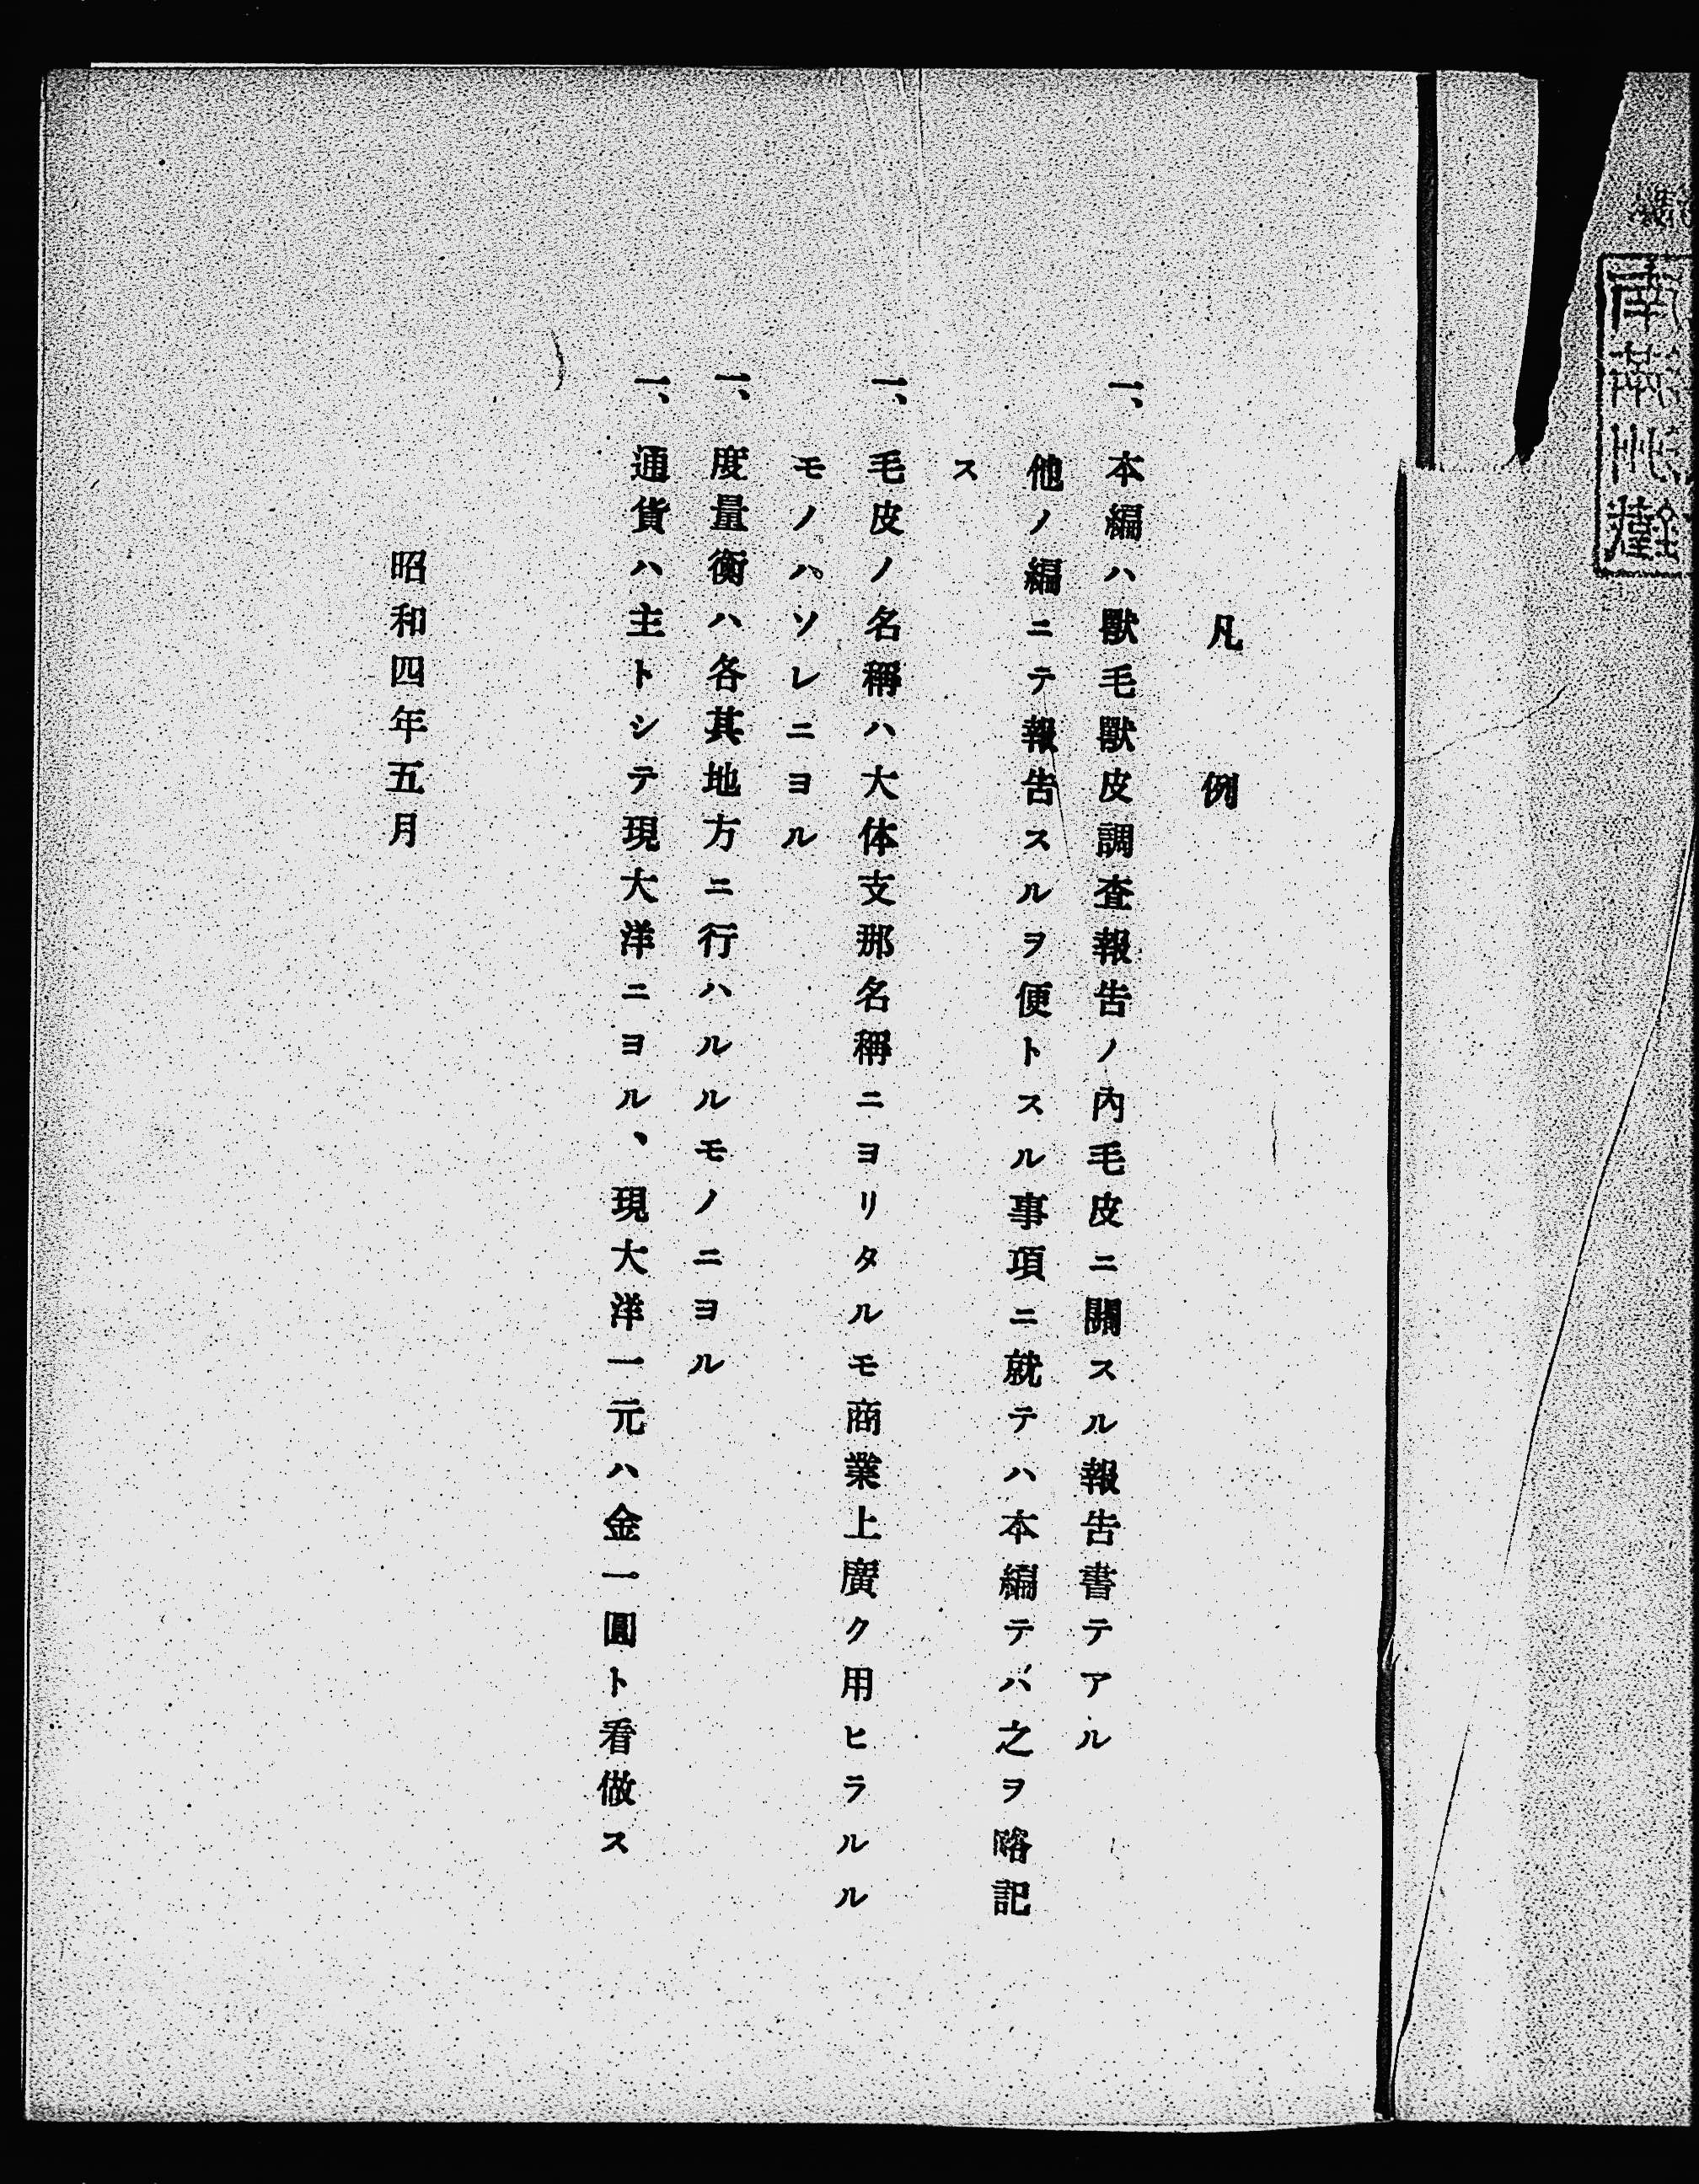 凡例
一、本編ハ獸毛獸皮調査報告ノ內毛皮ニ關スル報告書テアル
他ノ編ニテ報告スルヲ便トスル事項ニ就テハ本編テハ之ヲ略記
ス
一、毛皮ノ名稱ハ大体支那名稱ニヨリタルモ商業上廣ク用ヒラルル
モノハソレニヨル
一、度量衡ハ各其地方ニ行ハルルモノニヨル
一、通貨ハ主トシテ現大洋ニヨル、現大洋一元ハ金一圓ト看做ス
昭和四年五月